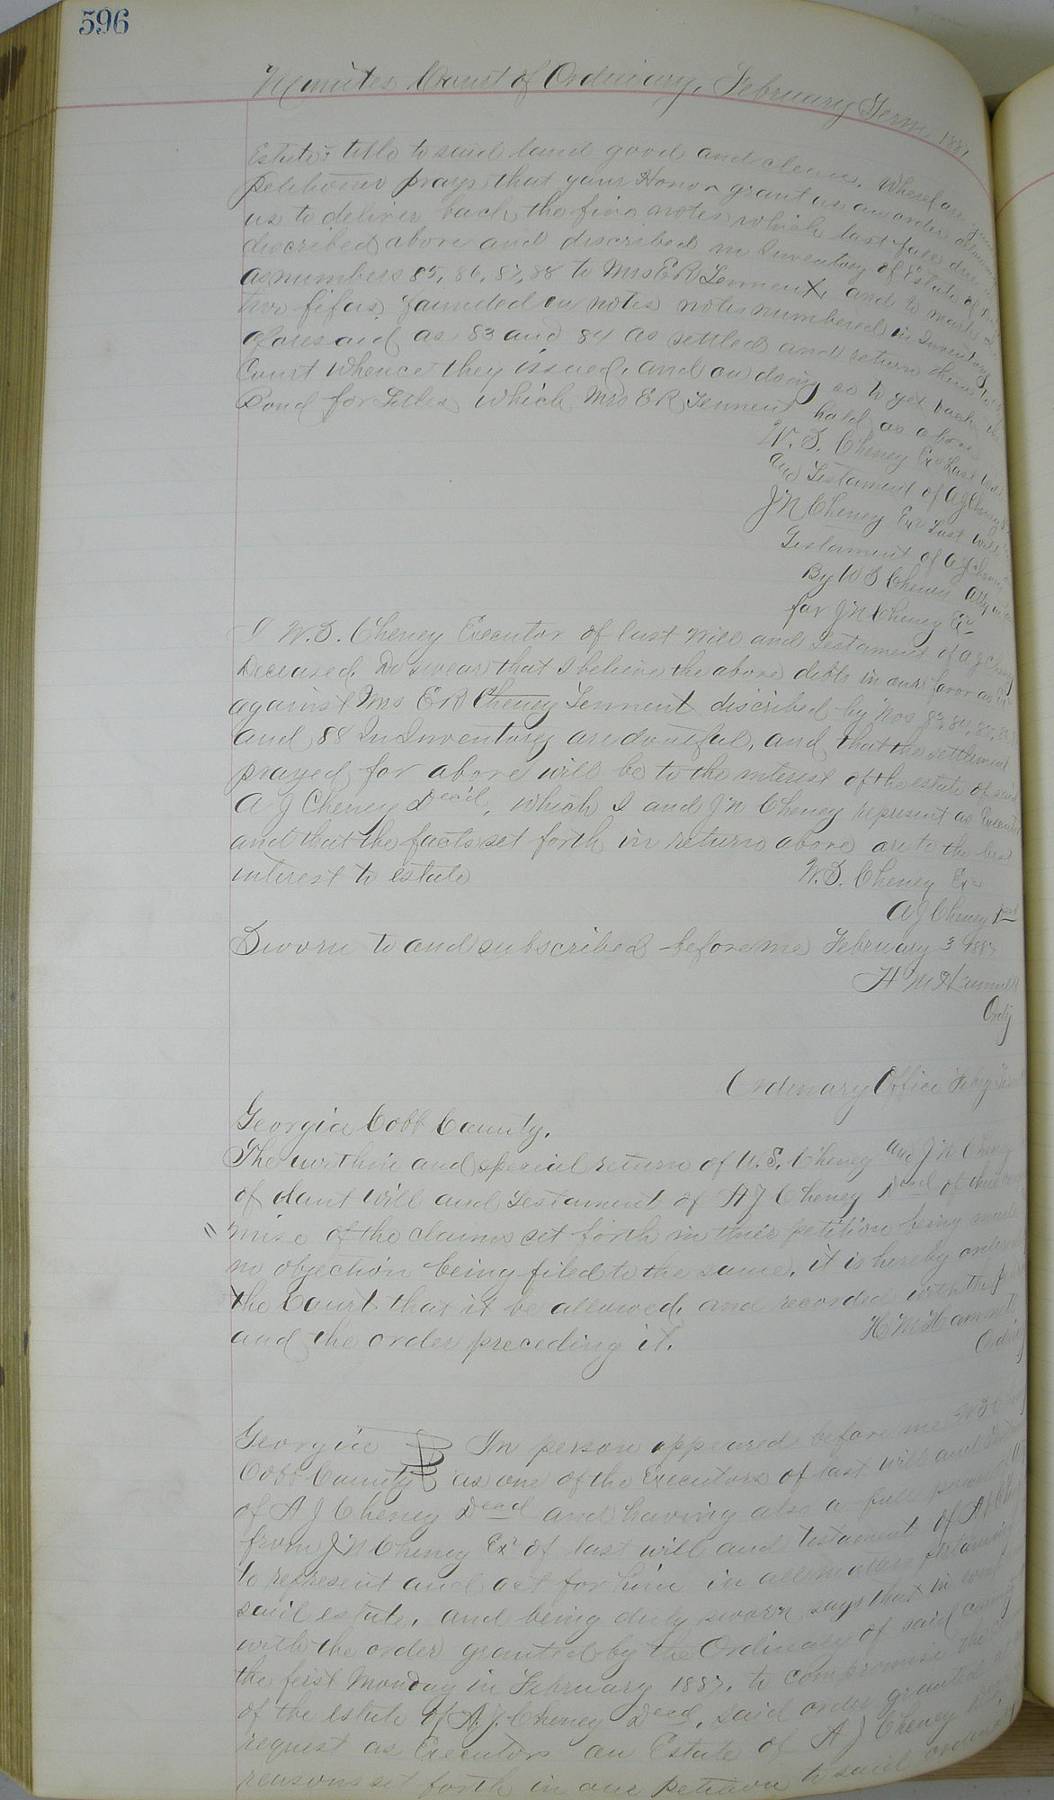 596
Minutes Court of Ordinary, February Term 1887
Estate's title to said land good and clear. Wherefore your
petitioner prays that your Honor grant us an order
us to deliver back the five notes which last fall due
discribed above and discribed in Inventory of Estate of
as numbers 85, 86, 87, 88 to Mrs E R Tennent, and to mark
two fifas founded on notes notes numbered in Inventory
aforesaid as 83 and 84 as settled and return them to
Court whence they issued, and on doing so to get back the
Bond for Titles which Mrs E R Tennent hold as above
W. S. Cheney Exr Last Will
and Testament of A J Cheney
J N Cheney Exr Last Will
Testament of A J Cheney
By W S Cheney Atty in
for J N Cheney Exr
I W. S. Cheney Executor of last Will and Testament of A J Cheney
Deceased, Do swear that I believe the above debts in our favor as Exr
against Mrs E R Cheney Tennent discribed by Nos 83, 84, 85,
and 88 In Inventory are doutful, and that the settlement
prayed for above will be to the interest of the estate of said
A J Cheney Dead, which I and J N Cheney represent as Executors
and that the facts set forth in return above are to the best
interest to estate W. S. Cheney Exr
A J Cheney Dead
Sworn to and subscribed before me February 3 1887
H M Hammett
Ordy
Ordinary Office Feby Term
Georgia Cobb County.
The within and special return of W. S. Cheney and J N Cheney
of last Will and Testament of A J Cheney Dead of
" mise of the claims set forth in their petition being made
no objection being filed to the same, it is hereby ordered
the Court that it be allowed, and recorded with the
and the order preceding it. H M Hammett
Ordinary
Georgia In person appeared before me W S
Cobb County as one of the Executors of last will and
of A J Cheney Dead and having also a full power
from J N Cheney Exr of last will and testament of A J
to represent and act for him in all matters pertaining
said estate, and being duly sworn says that in
with the order granted by the Ordinary of said county
the first Monday in February 1887, to compromise the
of the Estate of A. J. Cheney Dead, said order granted
request as Executors on Estate of A J Cheney
reasons set forth in our petition to said